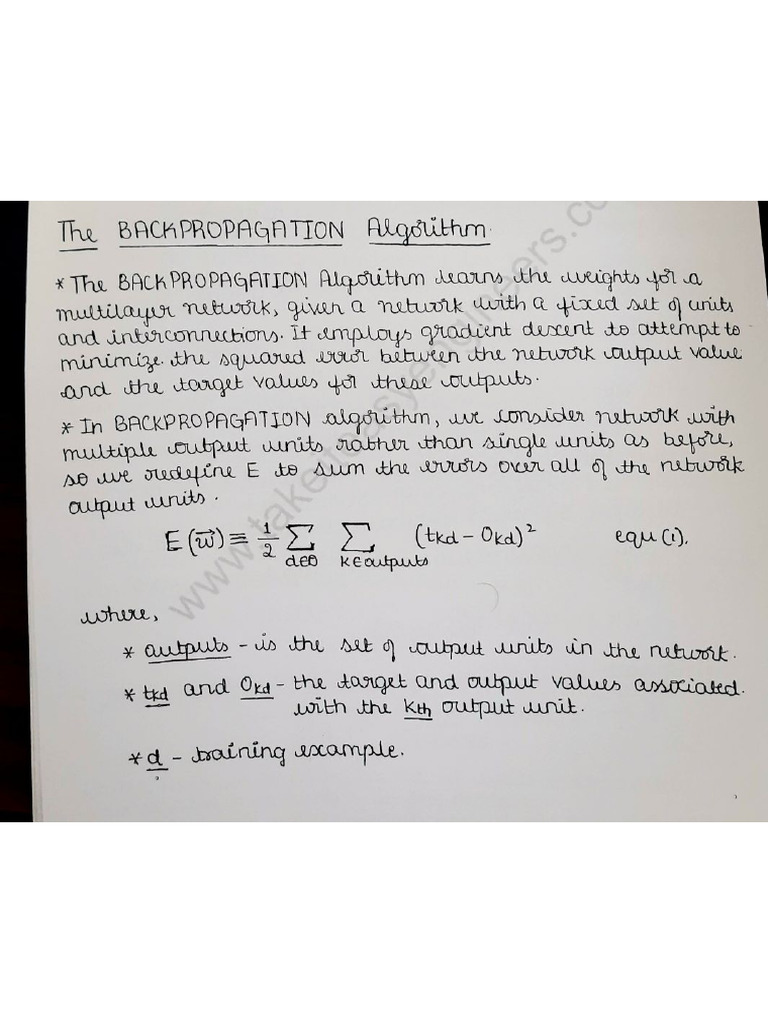 The BACKPROPAGATION Algorithm.
* The BACKPROPAGATION Algorithm learns the weights for a
multilayer network, given a network with a fixed set of units
and interconnections. It employs gradient descent to attempt to
minimize the squared error between the network output value
and the target values for these outputs.
* In BACKPROPAGATION algorithm, we consider network with
multiple output units rather than single units as before,
so we redefine E to sum the errors over all of the network
output units.
E(w⃗) ≡ 1/2 Σ d∈D Σ k∈outputs (tkd - Okd)² equ (1).
where,
* outputs - is the set of output units in the network.
* tkd and Okd - the target and output values associated
with the Kth output unit.
* d - training example.
www.takeiteasyengineers.co